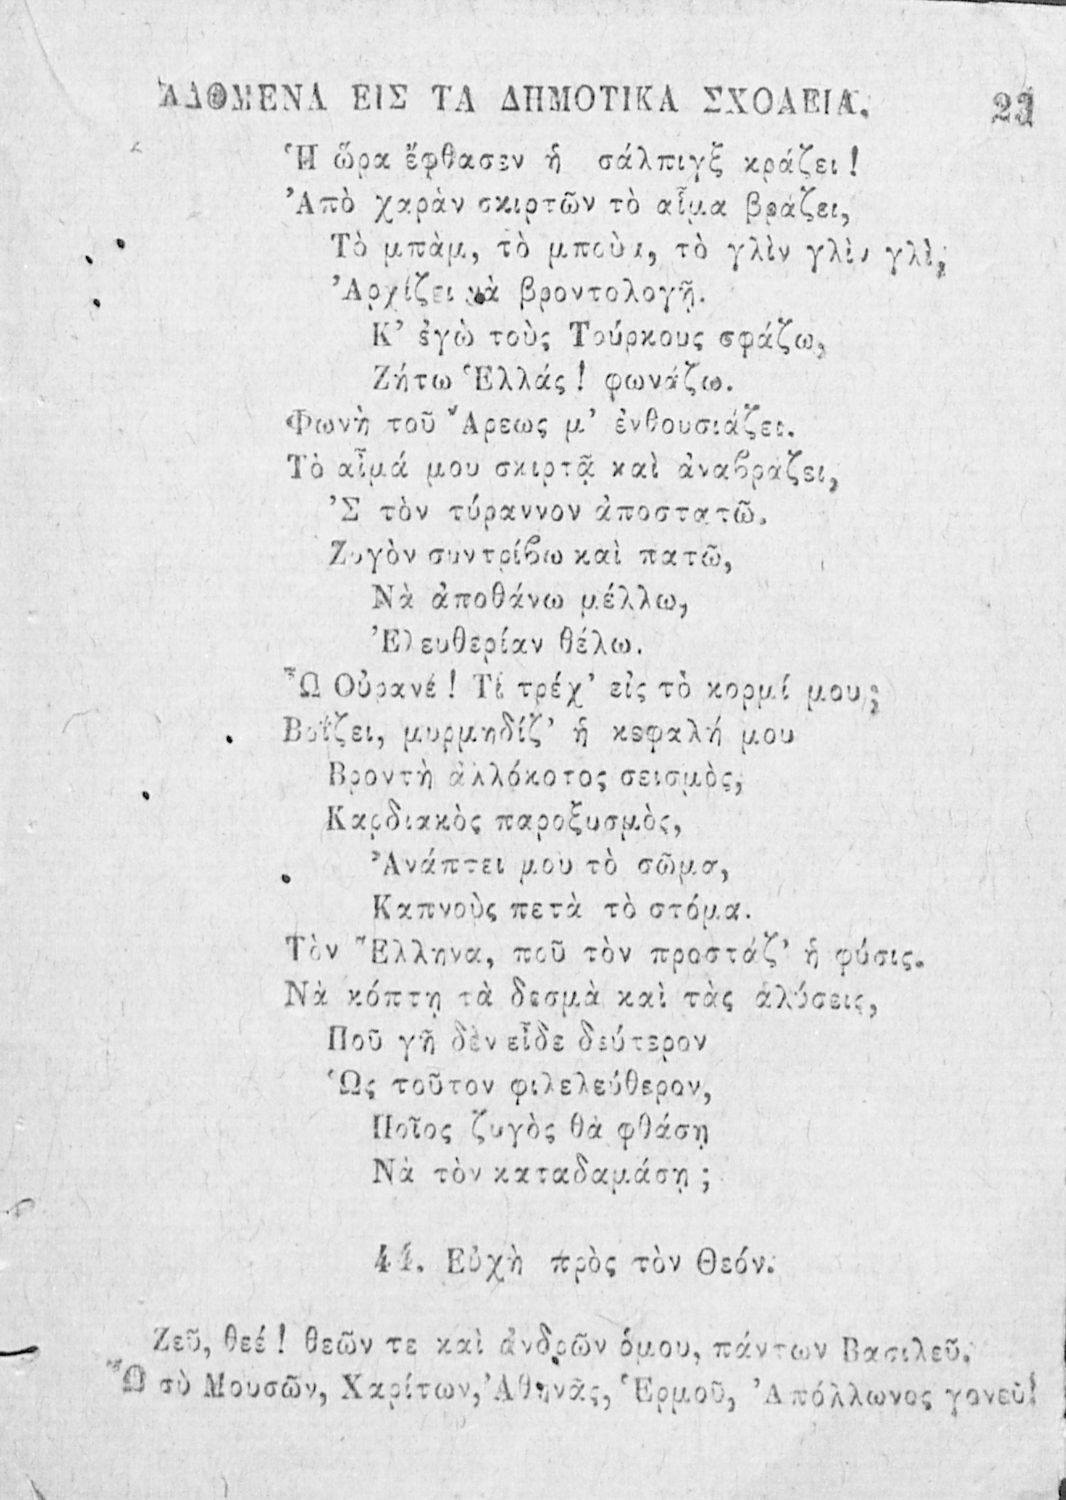 ᾈΔΟΜΕΝΑ ΕΙΣ ΤΑ ΔΗΜΟΤΙΚΑ ΣΧΟΛΕΙΑ. 23
Ἡ ὥρα ἔφθασεν ἡ σάλπιγξ κράζει!
Ἀπὸ χαρὰν σκιρτῶν τὸ αἷμα βράζει,
Τὸ μπὰμ, τὸ μποὺμ, τὸ γλὶν γλὶν γλὶ,
Ἀρχίζει νὰ βροντολογῇ.
Κ’ ἐγὼ τοὺς Τούρκους σφάζω,
Ζήτω Ἑλλάς! φωνάζω.
Φωνὴ τοῦ Ἄρεως μ’ ἐνθουσιάζει.
Τὸ αἷμά μου σκιρτᾷ καὶ ἀναβράζει,
Ἐ τὸν τύραννον ἀποστατῶ.
Ζυγὸν συντρίβω καὶ πατῶ,
Νὰ ἀποθάνω μέλλω,
Ἐλευθερίαν θέλω.
Ὦ Οὐρανέ! Τί τρέχ’ εἰς τὸ κορμί μου;
Βοΐζει, μυρμηδίζ’ ἡ κεφαλή μου
Βροντὴ ἀλλόκοτος σεισμὸς,
Καρδιακὸς παροξυσμὸς,
Ἀνάπτει μου τὸ σῶμα,
Καπνοὺς πετὰ τὸ στόμα.
Τὸν Ἕλληνα, ποῦ τὸν προστάζ’ ἡ φύσις.
Νὰ κόπτῃ τὰ δεσμὰ καὶ τὰς ἁλύσεις,
Ποῦ γῆ δὲν εἶδε δεύτερον
Ὡς τοῦτον φιλελεύθερον,
Ποῖος ζυγὸς θὰ φθάσῃ
Νὰ τὸν καταδαμάσῃ;
44. Εὐχὴ πρὸς τὸν Θεόν.
Ζεῦ, θεέ! θεῶν τε καὶ ἀνδρῶν ὁμου, πάντων Βασιλεῦ.
Ὦ σὺ Μουσῶν, Χαρίτων, Ἀθηνᾶς, Ἑρμοῦ, Ἀπόλλωνος γονεῦ!